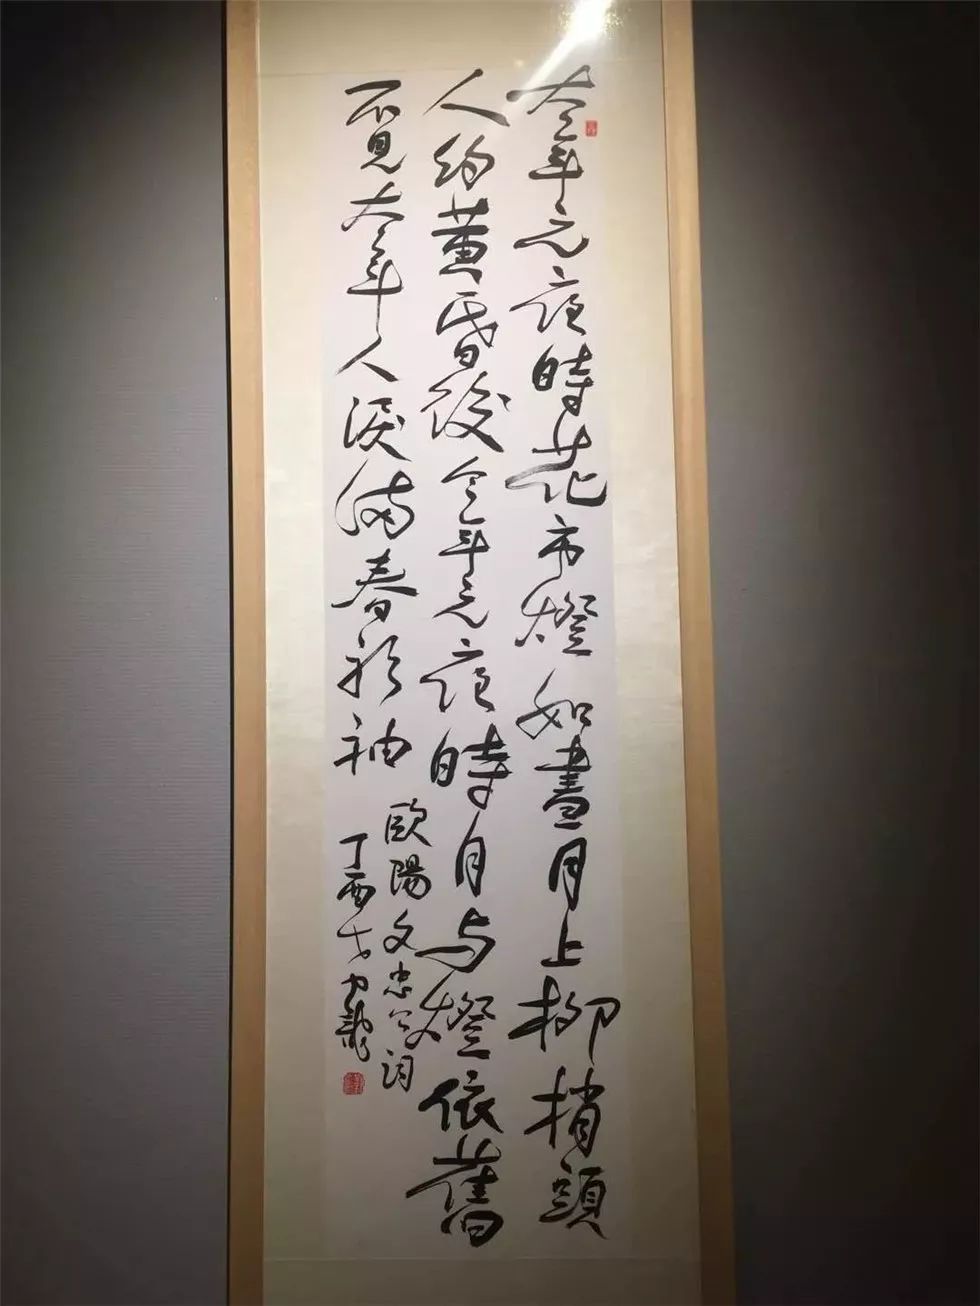 去年元夜時花市燈如晝月上柳梢頭
人約黃昏後今年元夜時月与燈依舊
不見去年人淚滿春衫袖
歐陽文忠公詞
丁酉